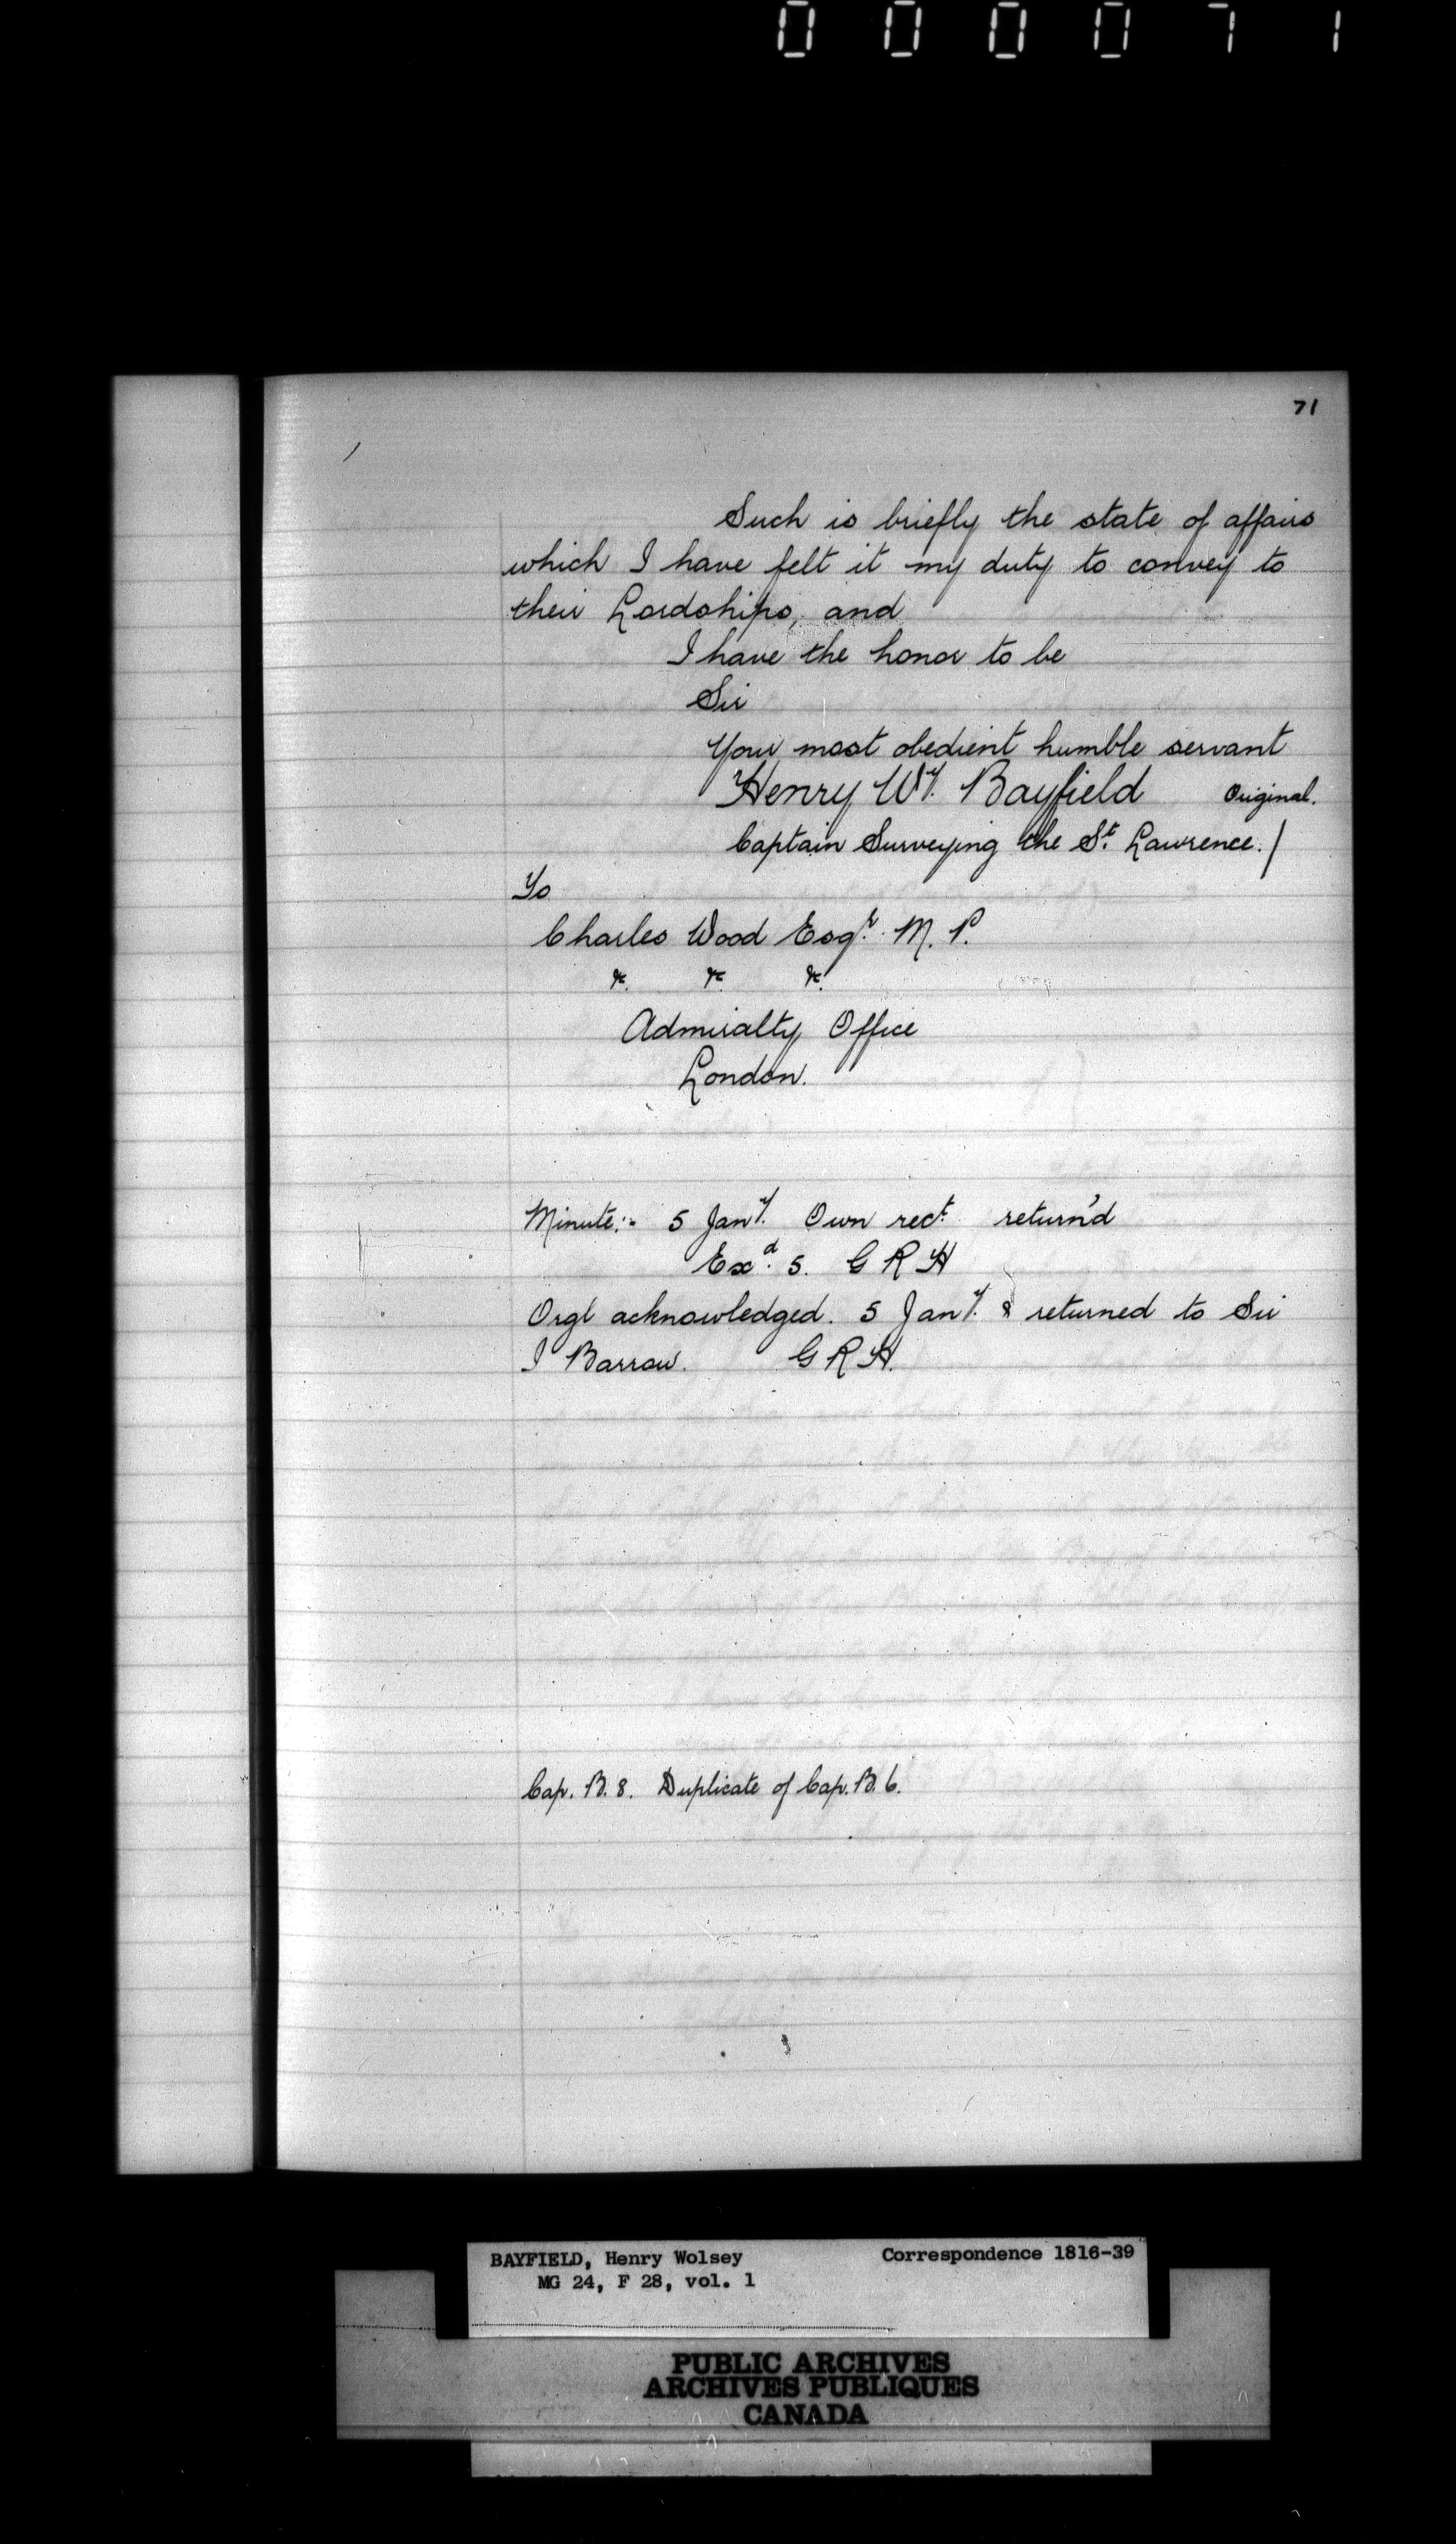 000071
71
Such is briefly the state of affairs
which I have felt it my duty to convey to
their Lordships, and
I have the honor to be
Sir
Your most obedient humble servant
Henry Wy. Bayfield Original.
Captain Surveying the St. Lawrence./
To
Charles Wood Esqr. M. P.
&c. &c. &c.
Admiralty Office
London.
Minute:- 5 Jany. Own rect. return'd
Exd. 5. G R H
Orgl acknowledged. 5 Jany. & returned to Sir
J Barrow. G R H.
Cap. B. 8. Duplicate of Cap. B. 6.
BAYFIELD, Henry Wolsey Correspondence 1816-39
MG 24, F 28, vol. 1
PUBLIC ARCHIVES
ARCHIVES PUBLIQUES
CANADA